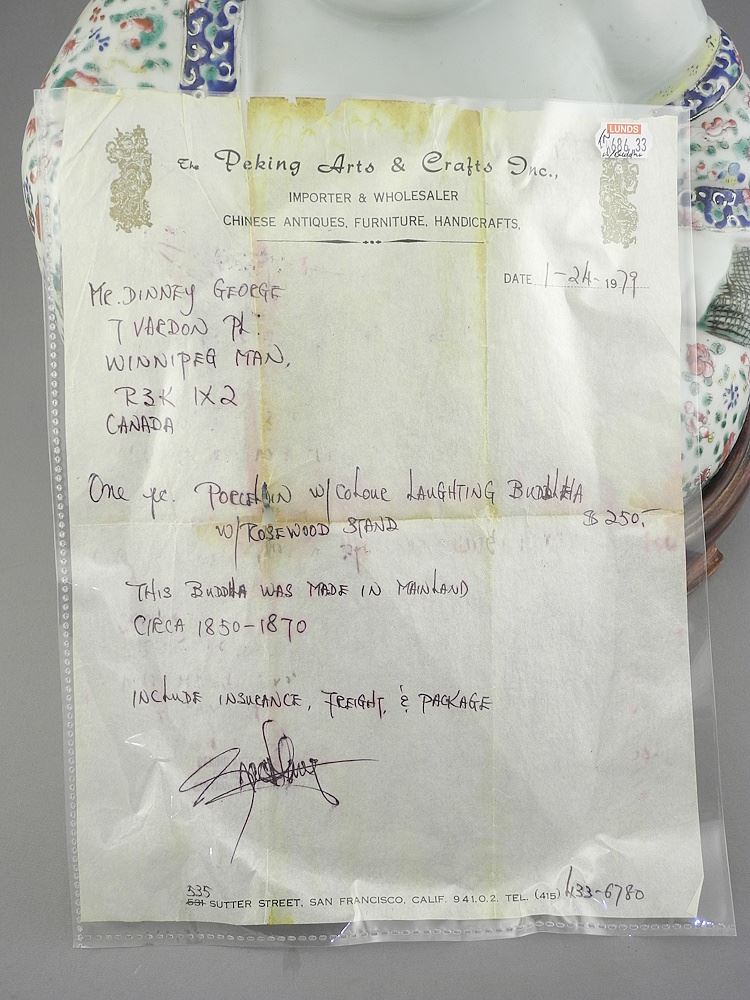 The Peking Arts & Crafts Inc.,
IMPORTER & WHOLESALER
CHINESE ANTIQUES, FURNITURE, HANDICRAFTS,
LUNDS
686.33
w/Buddha
DATE 1-24-1979
MR. DINNEY GEORGE
7 VARDON PL.
WINNIPEG MAN,
R3K 1X2
CANADA
One pc. PORCELAIN w/COLOUR LAUGHTING BUDDHA
w/ROSEWOOD STAND $250.-
THIS BUDDHA WAS MADE IN MAINLAND
CIRCA 1850-1870
INCLUDE INSURANCE, FREIGHT, & PACKAGE
535
531 SUTTER STREET, SAN FRANCISCO, CALIF. 941.0.2. TEL. (415) 433-6780